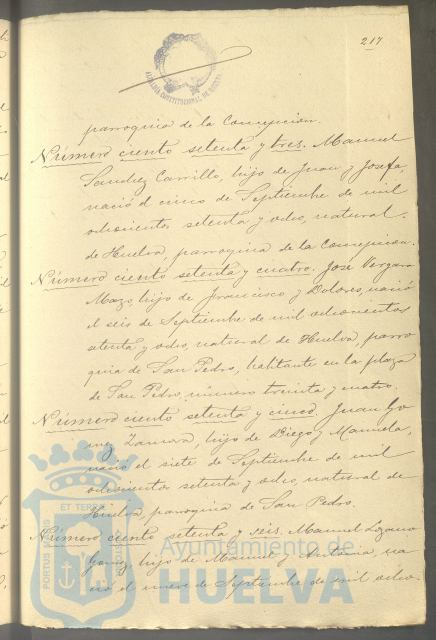 217
ALCALDIA CONSTITUCIONAL DE HUELVA
parroquia de la Concepcion.
Número ciento setenta y tres. Manuel
Sanchez Carrillo, hijo de Juan y Josefa,
nació el cinco de Septiembre de mil
ochocientos setenta y ocho, natural
de Huelva, parroquia de la Concepcion.
Número ciento setenta y cuatro. José Vergara
Mazo, hijo de Francisco y Dolores, nació
el seis de Septiembre de mil ochocientos
setenta y ocho, natural de Huelva, parro
quia de San Pedro, habitante en la plaza
de San Pedro, número treinta y cuatro.
Número ciento setenta y cinco. Juan Go
mez Zamora, hijo de Diego y Manuela,
nació el siete de Septiembre de mil
ochocientos setenta y ocho, natural de
Huelva, parroquia de San Pedro.
Número ciento setenta y seis. Manuel Lozano
hijo de Manuel y Antonia, na
ció el nueve de Septiembre de mil ocho
PORTUS MARIS ET TERRE CUSTODIA
Ayuntamiento de
HUELVA